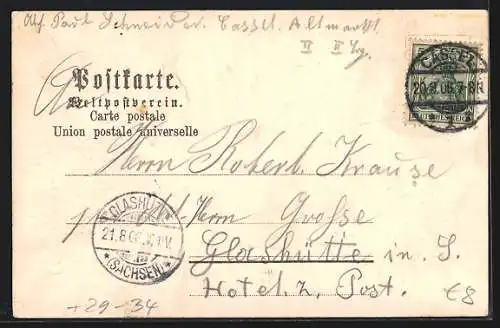 Abs. Paul Schneider. Cassel. Altmarkt
II
Postkarte.
Weltpostverein.
Carte postale
Union postale universelle
CASSEL
20.8.06.7-8N.
1
DEUTSCHES REICH
Herrn Robert Krause
Herrn Grosse
Glashütte in. S.
Hotel. z. Post.
GLASHÜTTE
21.8.06.
*(SACHSEN)*
+29-34
€8